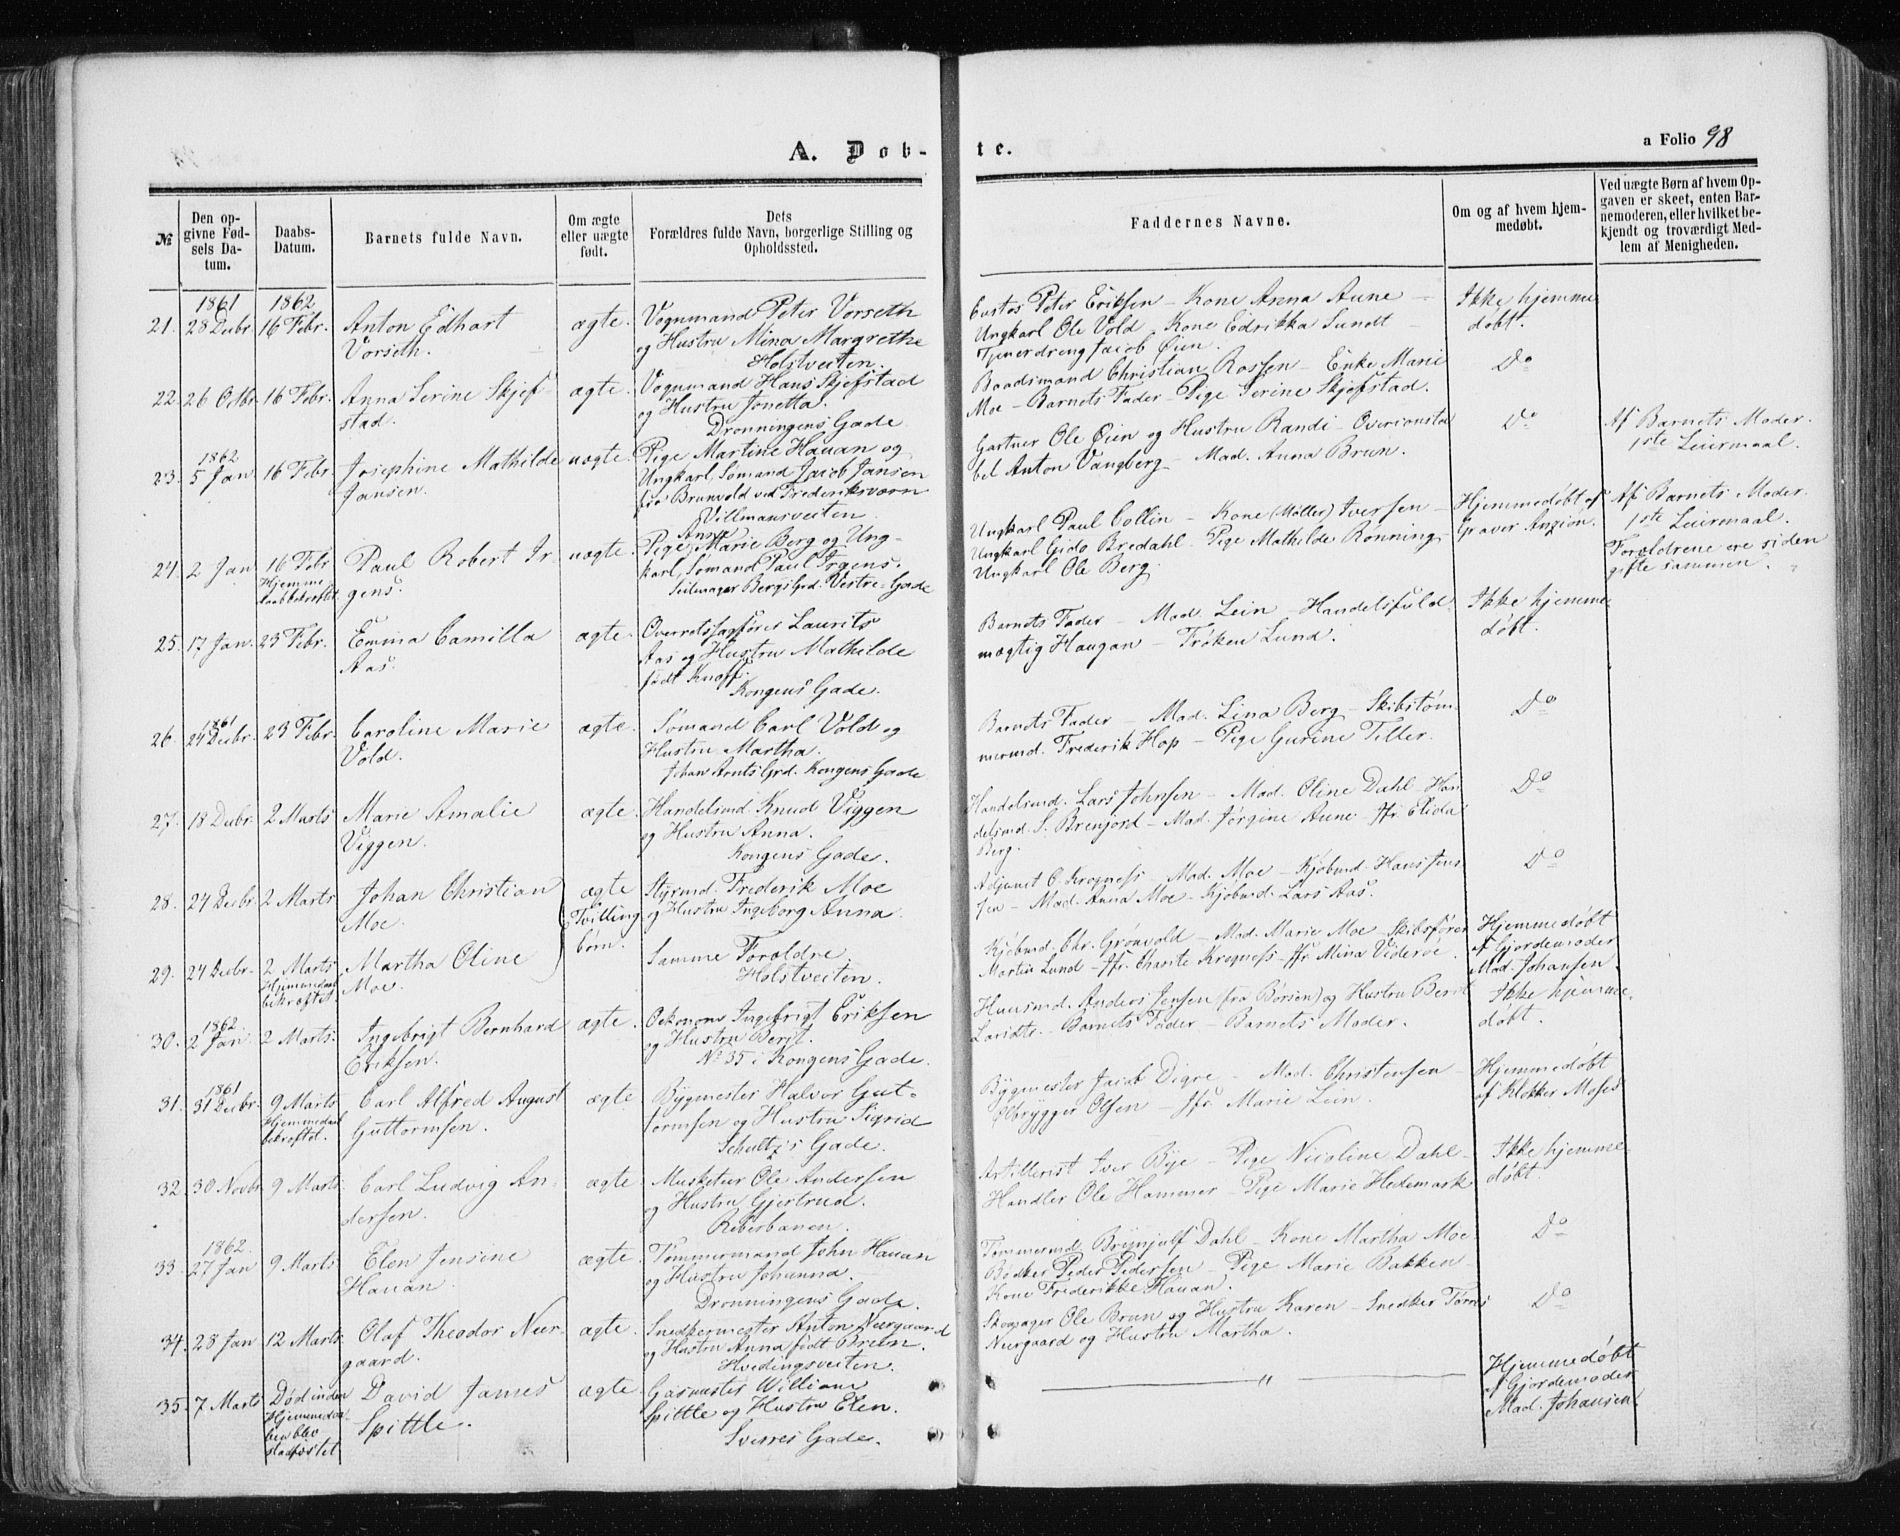 A. Døb-
te.
a Folio 98
№
Den op-
givne Fød-
sels Da-
tum.
Daabs-
Datum.
Barnets fulde Navn.
Om ægte
eller uægte
født.
Dets
Forældres fulde Navn, borgerlige Stilling og
Opholdssted.
Faddernes Navne.
Om og af hvem hjem-
medøbt.
Ved uægte Børn af hvem Op-
gaven er skeet, enten Bar-
nemoderen, eller hvilket be-
kjendt og troværdigt Med-
lem af Menigheden.
1861
1862
21. 28 Decbr. 16 Febr. Anton Edhart
Vorseth.
ægte.
Vognmand Peter Vorseth
og Hustru Mina Margrethe
Holstveiten.
Custos Peter Eriksen - Kone Anna Aune -
Ungkarl Ole Vold - Kone Edrikka Sundt -
Tjenerdreng Jacob Øien.
Ikke hjemme
døbt.
22. 26 Octbr. 16 Febr. Anna Serine Skjef-
stad.
ægte.
Vognmand Hans Skjefstad
og Hustru Jonetta.
Dronningens Gade.
Baadsmand Christian Rossen - Enke Marie
Moe - Barnets Fader - Pige Serine Skjefstad.
Do
1862
23. 5 Jan. 16 Febr. Josephine Mathilde
Jansen.
uægte.
Pige Martine Hauan og
Ungkarl, Sømand Jacob Jansen
fra Brunvold ved Frederiksværn
Villmansveiten
Gartner Ole Øien og Hustru Randi -
bel Anton Vangberg - Mad. Anna Brun.
Do
Af Barnets Moder.
1ste Leiermaal.
24. 2 Jan. 16 Febr.
Hjemme
daab bekræftet.
Paul Robert Ir-
gens.
uægte.
Anne
Pige Marie Berg og Ung-
karl, Sømand Paul Irgens.
Seilmager Bergs Grd. Vestre-Gade
Ungkarl Paul Collin - Kone (Møller) Iversen -
Ungkarl Gido Bredahl - Pige Mathilde Rønning
Ungkarl Ole Berg.
Hjemmedøbt af
Graver Anzion.
Af Barnets Moder.
1ste Leiermaal.
Forældrene ere siden
gifte sammen.
25. 17 Jan. 23 Febr. Emma Camilla
Aas.
ægte.
Overretssagfører Laurits
Aas og Hustru Mathilde
født Knoff.
Kongens Gade.
Barnets Fader - Mad. Lein - Handelsfuld-
mægtig Haugan - Frøken Lund.
Ikke hjemme
døbt.
1861
26. 24 Decbr. 23 Febr. Caroline Marie
Vold.
ægte.
Sømand Carl Vold og
Hustru Martha.
Johan Arnts Grd. Kongens Gade
Barnets Fader - Mad. Lina Berg - Skibstøm-
mermd. Frederik Hop - Pige Gurine Tiller.
Do
27. 18 Decbr. 2 Marts Marie Amalie
Viggen.
ægte.
Handelsmd. Knud Viggen
og Hustru Anna.
Kongens Gade.
Handelsmd. Lars Johnsen - Mad. Oline Dahl - Han-
delsmd. S. Brenjord - Mad. Jørgine Aune - Jfr. Elida
Berg.
Do
28. 24 Decbr. 2 Marts Johan Christian
Moe.
ægte
Tvilling
børn.
Styrmd. Frederik Moe
og Hustru Ingeborg Anna.
Adjunct O. Krogness - Mad. Moe - Kjøbmd. Hans Jens
sen - Mad. Anna Moe - Kjøbmd. Lars Aas.
Do
29. 24 Decbr. 2 Marts
Hjemmedaab
bekræftet.
Martha Oline
Moe.
Samme Forældre.
Holstveiten.
Kjøbmd. Chr. Grønvold - Mad. Marie Moe - Skibsfører
Martin Lund - Jfr. Charite Krogness - Jfr. Mina Viderøe.
Hjemmedøbt
af Gjordemoder
Mad. Johansen.
1862
30. 2 Jan. 2 Marts. Ingebrigt Bernhard
Eriksen.
ægte.
Oekonom Ingebrigt Eriksen
og Hustru Berit.
No 35 i Kongens Gade.
Huusmd. Anders Jensen (fra Børsen) og Hustru Berit
- Barnets Fader - Barnets Moder.
Ikke hjemme-
døbt.
1861
31. 31 Decbr. 9 Marts
Hjemmedaab
bekræftet.
Carl Alfred August
Guttormsen.
ægte
Bygmester Halvor Gut-
tormsen og Hustru Sigrid
Schultz's Gade.
Bygmester Jacob Digre - Mad. Christensen -
Ølbrygger Olsen - Jfr. Marie Lein.
Hjemmedøbt
af Klokker Moses
32. 30 Novbr. 9 Marts. Carl Ludvig An-
dersen.
ægte.
Musketeer Ole Andersen
og Hustru Gjertrud.
Reberbanen.
Artillerist Iver Bye - Pige Nicoline Dahl -
Handler Ole Hammer - Pige Marie Hedemark
Ikke hjemme
døbt.
1862.
33. 27 Jan 9 Marts. Elen Jensine
Hauan.
ægte.
Tømmermand John Hauan
og Hustru Johanna.
Dronningens Gade.
Tømmermd Brynjulf Dahl - Kone Martha Moe
Bødker Peder Pedersen - Pige Marie Bakken -
Kone Frederikke Hauan.
Do
34. 28 Jan 12 Marts. Olaf Theodor Neer-
gaard.
ægte.
Snedkermester Anton Neergaard
og Hustru Anna født Brun.
Hvedingsveiten.
Skomager Ole Brun og Hustru Karen - Snedker Tørres
Neergaard og Hustru Martha.
Do
35. 7 Marts Død inden
Hjemmedaa-
ben blev
stadfæstet
David James
Spittle.
ægte.
Gasmester William
Spittle og Hustru Elen.
Sverres Gade.
"
Hjemmedøbt
af Gjordemoder
Mad. Johansen.